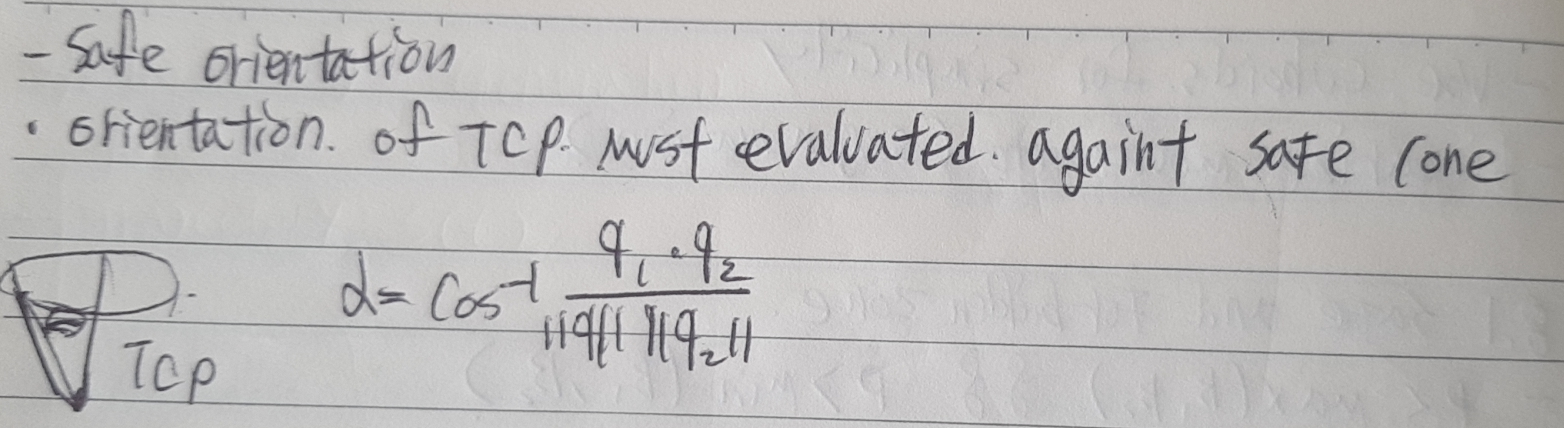 - Safe orientation
• orientation. of TCP. must evaluated. againt safe cone
d = cos⁻¹ q₁ · q₂ / ||q|| ||q₂||
TCP